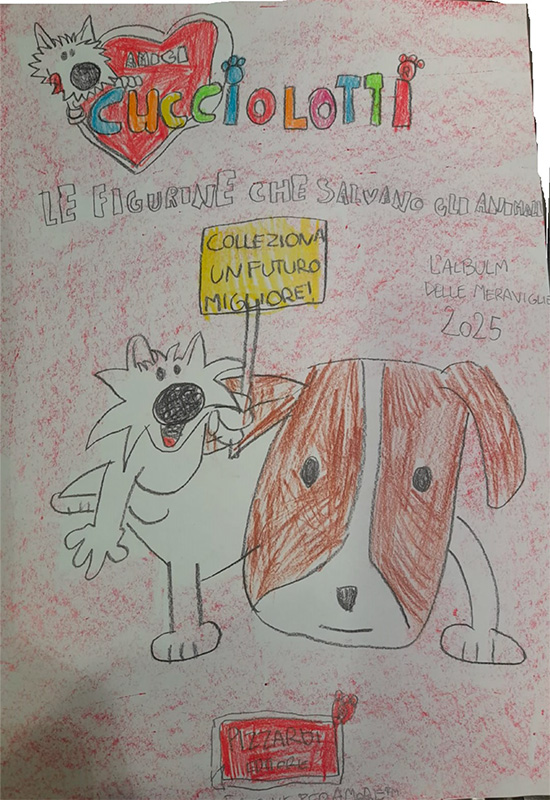 AMICI
CUCCIOLOTTI
LE FIGURINE CHE SALVANO GLI ANIMALI
COLLEZIONA
UN FUTURO
MIGLIORE!
L'ALBULM
DELLE MERAVIGLIE
2025
PIZZARDI
EDITORE